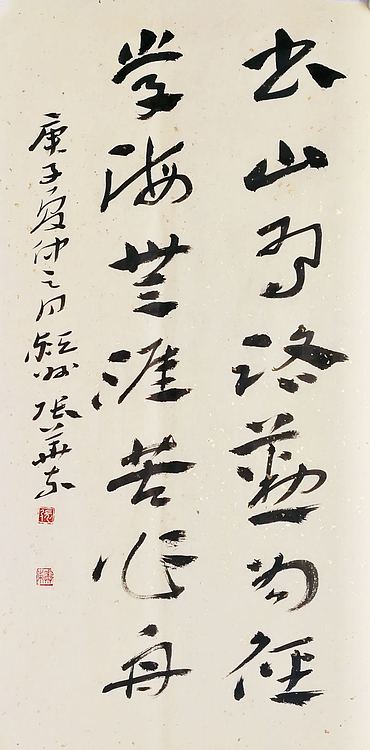 书山有路勤为径
学海無涯苦作舟
庚子夏仲之月颍州張華东